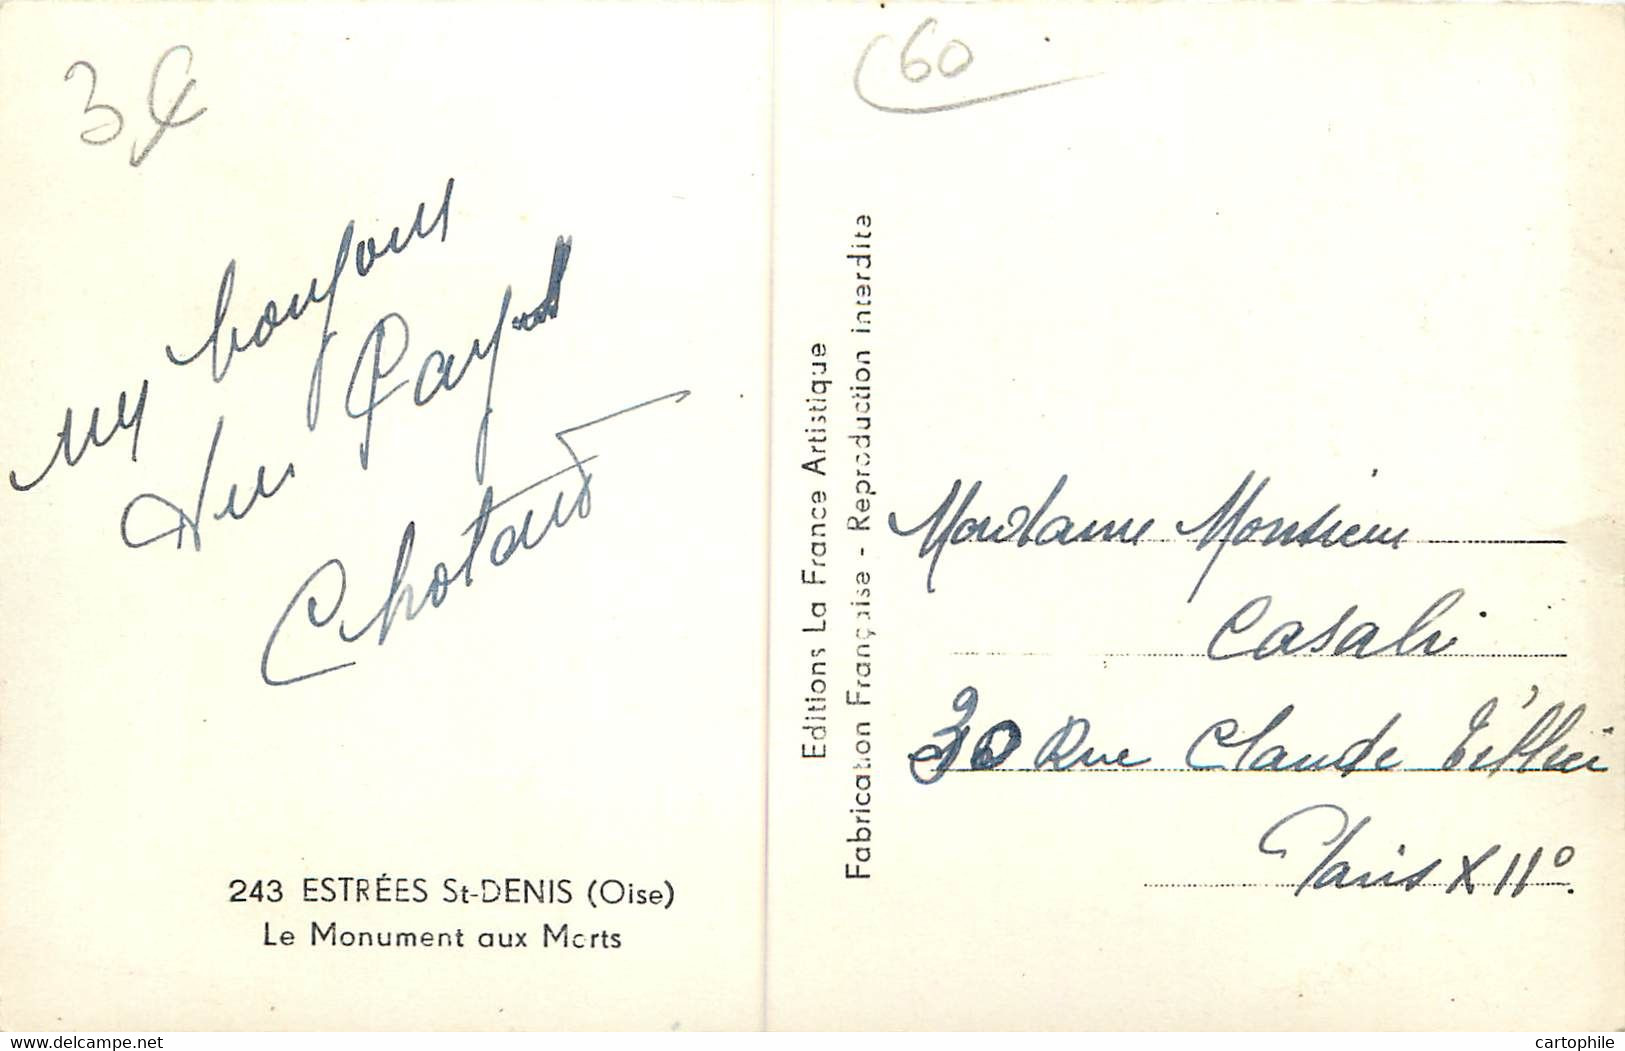 3€
60
un bonjour
d'un Pays
Chotard
243 ESTRÉES St-DENIS (Oise)
Le Monument aux Morts
Editions La France Artistique
Fabrication Française - Reproduction interdite
Madame Monsieur
Casabi
30 Rue Claude Tillier
Paris XII°.
my ebay
cartophile